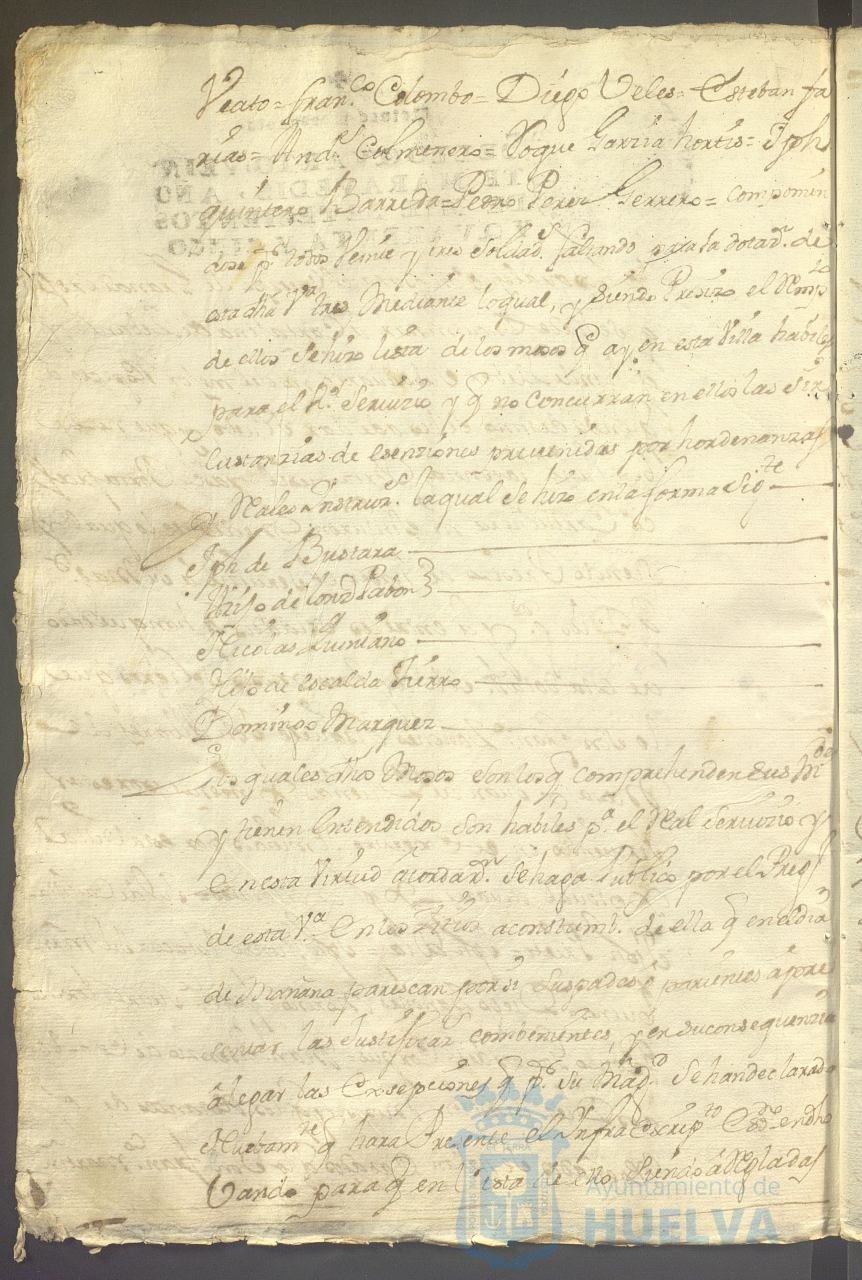 Veato = Fran.co Colombo = Diego Veles = Esteban fa
rias = And.s Colmenero = Roque Garzia hortis = Jph
quintero Barreda = Pedro Perez Gerrero = componien
dose p.r todos Veinte y tres Soldad.s faltando para la dotaz.n de
esta dha V.a tres Mediante lo qual, y siendo Preziso el
de ellos se hizo lista de los mosos q ay en esta Villa habiles
para el R.l Servizio y q no concurran en ellos las Sir
custanzias de esenziones prevenidas por hordenanzas
y Rales Ynstruz.s la qual se hizo en la forma Sig.te
Jph de Bustara
Hijo de Pabon
Nicolas Quintano
Hijo de Escalda Fierro
Domingo Marquez
Los quales dhos Mosos son los q comprehenden sus M.des
y tienen Entendidos son habiles p.a el Real Servizio y
en esta Virtud acordar.n se haga Publico por el Preg.n
de esta V.a en los sitios acostumb.s de ella q en el dia
de Mañana parescan por si sus padres o parientes a pre
sentar las Justificaz.s combenientes, y en su consequenzia
alegar las Exsepciones q p.r Su Mag.d se han declarado
nuebam.te q hara Presente el Ynfraescripto Es.no en dho
Vando para q en Vista de ello siendo arregladas
Ayuntamiento de
HUELVA